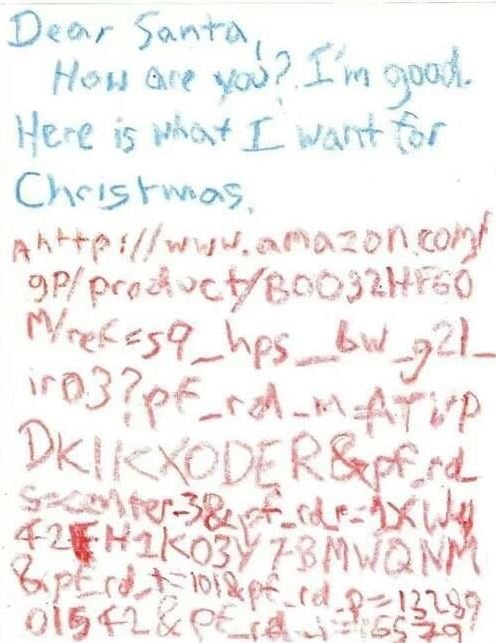 Dear Santa,
How are you? I'm good.
Here is what I want for
Christmas.
A http://www.amazon.com/
gp/product/B0032HF60
M/ref=s9_hps_bw_g21_
ir03?pf_rd_m=ATVP
DKIKX0DER&pf_rd_
s=center-3&pf_rd_r=1XWW
42FH1K03Y7BMWQNM
&pf_rd_t=101&pf_rd_p=13289
01542&pf_rd_i=